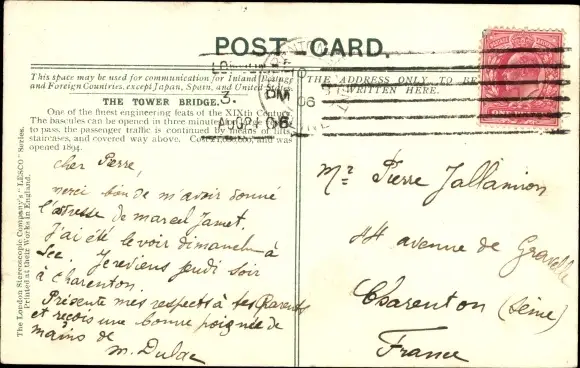 POST CARD.
This space may be used for communication for Inland Postage
and Foreign Countries, except Japan, Spain, and United States.
THE TOWER BRIDGE.
One of the finest engineering feats of the XIXth Century.
The bascules can be opened in three minutes
to pass, the passenger traffic is continued by means of lifts,
staircases, and covered way above. and was
opened 1894.
THE ADDRESS ONLY TO BE
WRITTEN HERE.
3. PM
AUG 06
ONE PENNY
The London Stereoscopic Company's "LESCO" Series.
Printed at their Works in England.
cher Pierre,
merci bien de m'avoir donné
l'adresse de marcel Jamet.
J'ai été le voir dimanche à
Je reviens jeudi soir
à Charenton.
Présente mes respects à tes Parents
et reçois une bonne poignée de
mains de
M. Dulac
Mr Pierre Jallamion
44 avenue de Gravelle
Charenton (Seine)
France